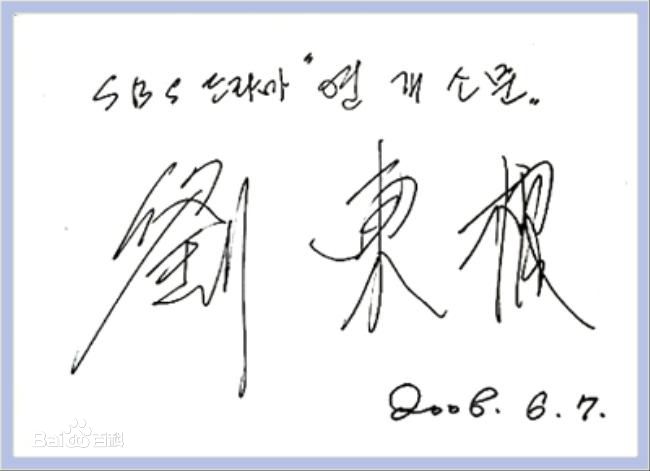 SBS 드라마 "연개소문"
劉東根
2006. 6. 7.
Bai du 百科